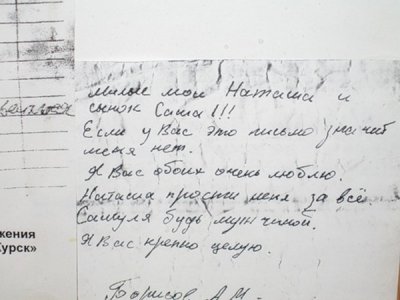 милые мои Наташа и
сынок Саша!!!
Если у Вас это письмо значит
меня нет.
Я Вас обоих очень люблю.
Наташа прости меня за всё.
Сашуля будь мужчиной.
Я Вас крепко целую.
Борисов А.М.
жения
Курск»